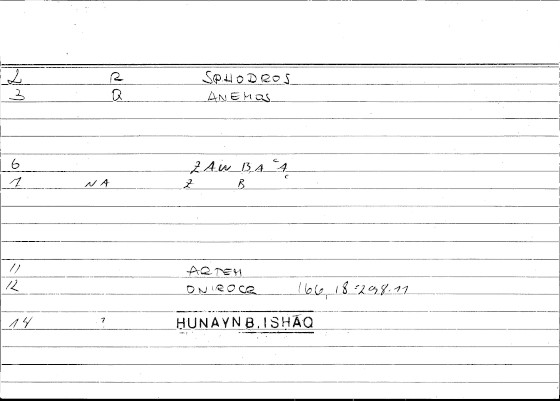 2 R SPHODROS
3 Q ANEMOS
6 ZAWBAʿA
1 NA Z B ʿ
11 ARTEM
12 ONIROCR 166,18=298.11
14 ? HUNAYN B. ISHĀQ